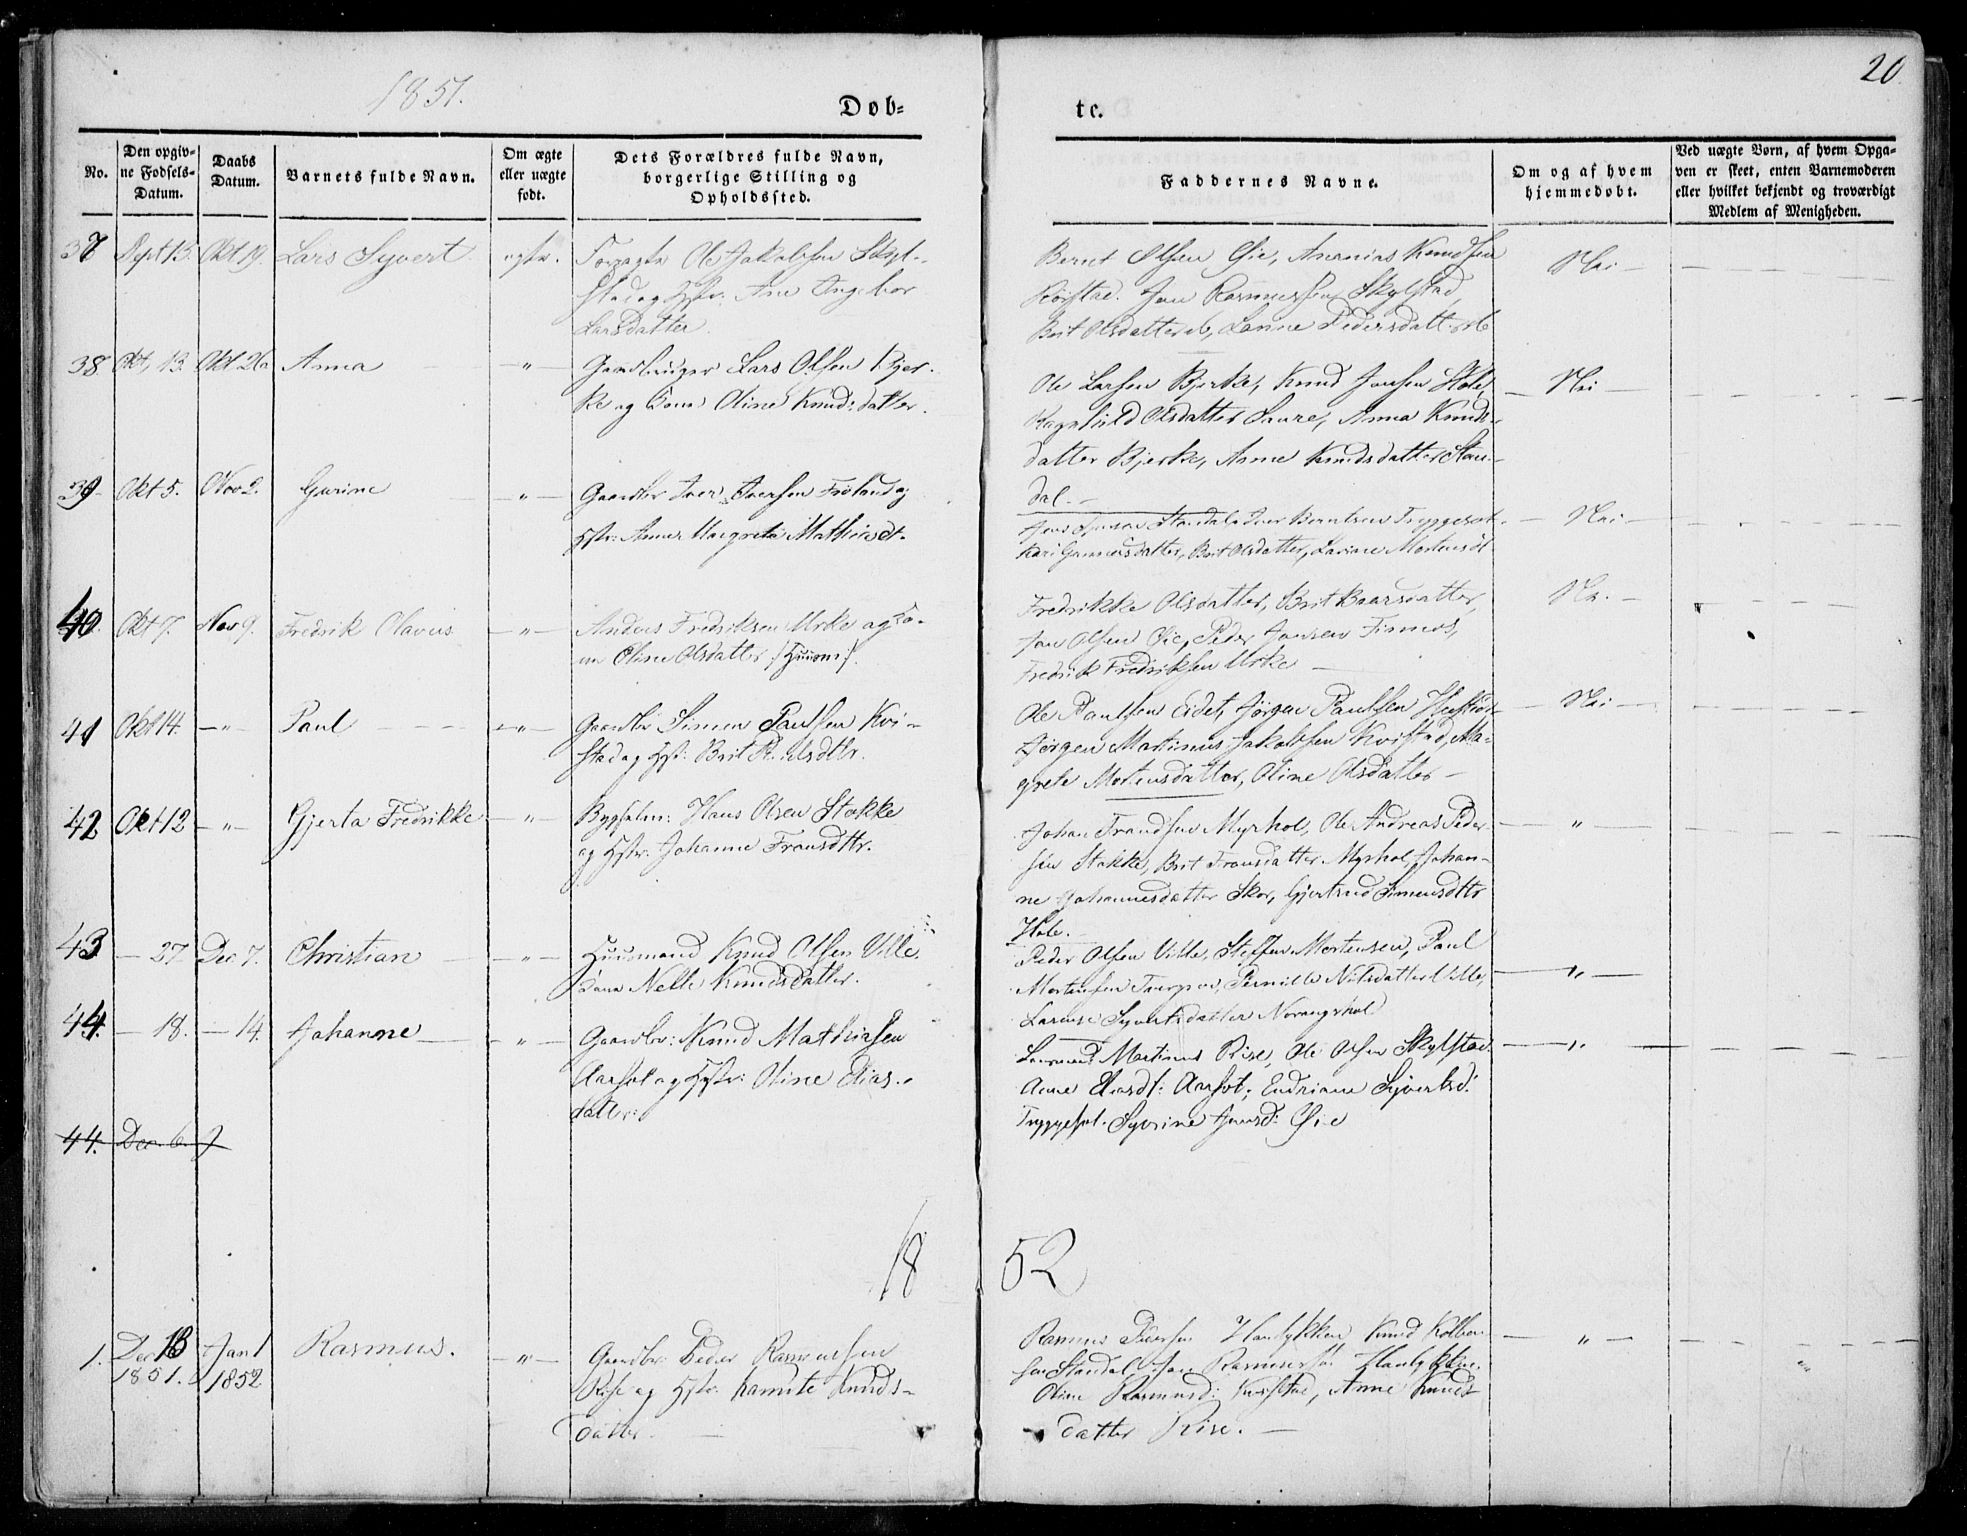 1851.
Døb=
te.
20
No.
Den opgiv=
ne Fødsels=
Datum.
Daabs
Datum.
Barnets fulde Navn.
Om ægte
eller uægte
født.
Dets Forældres fulde Navn,
borgerlige Stilling og
Opholdssted.
Faddernes Navne.
Om og af hvem
hjemmedøbt.
Ved uægte Børn, af hvem Opga=
ven er skeet, enten Barnemoderen
eller hvilket bekjendt og troværdigt
Medlem af Menigheden.
37 Sept 13. Okt 19. Lars Syvert ægte. Ole Jakobsen Skyl-
stad og Hstr. Ane Ingebor
Larsdatter.
Bernt Olsen Øie, Ananias Knudsen
Røistad. Jon Rasmussen Skylstad,
Brit Olsdatter ib, Lanne Pedersdatt. ib
Nei
38 Okt. 13. Okt 26 Anna — " — Gaardbruger Lars Olsen Bjer-
ke og Kone Oline Knudsdatter.
Ole Larsen Bjerke, Knud Jonsen Hole,
Ragnhild Olsdatter Saure, Anna Knuds-
datter Bjerke, Anne Knudsdatter Stan-
dal. —
Nei
39 Okt 5. Nov 2. Gurine — " — Gaardbr Iver Iversen Frøland og
Hstr: Anne Margrete Mathiasdt.
Jens Standal Iver Berntsen Tryggeset.
Kari Gunnersdatter, Brit Olsdatter, Larine Mortensdt
Nei
40. Okt 7. Nov 9. Fredrik Olavus — " — Anders Fredriksen Urke og Ko-
ne Oline Olsdatter
Fredrikke Olsdatter, Brit Baarsdatter,
Jon Olsen Øie, Peder Jonsen Finnes,
Fredrik Fredriksen Urke —
Nei
41 Okt 14. — " — Paul — " — Gaardbr Simen Paulsen Kvi-
stad og Hstr. Brit
Ole Paulsen Eidet, Jørgen Paulsen
Jørgen Martinus Jakobsen Kvistad, Ma-
grete Mortensdatter, Oline Olsdatter —
Nei
42. Okt 12 — " — Gjerta Fredrikke — " — Bygselm: Hans Olsen Stokke
og Hstr. Johanne Fransdttr.
Johan Frandsen Myrhol, Ole Andreas Peder-
sen Stokke, Brit Fransdatter Myrhol, Johan-
ne Johannesdatter Skor, Gjertrud Simensdttr
Hole. —
"
43 — 27. Dec 7. Christian — " — Huusmand Knud Olsen Ville,
Kone Nelle Knudsdatter.
Peder Olsen Ville, Steffen Mortensen, Paul
Mortensen Pernille Nilsdatter Ville,
Larense Syvertsdatter Norangshol
"
44. — 18. — 14. Johanne — " — Gaardbr: Knud Mathiasen
Aarset og Hstr: Oline Elias-
datter.
Martinus Rise, Ole Olsen Skylstad.
Anne Eliasdt: Aarset; Endriane Syvertsd:
Tryggeset. Syverine Jonsd: Øie
"
44. Dec 6. J
18
52
1. Dec 18 Jan 1 Rasmus. — " — Gaardbr: Peder Rasmussen
1851. 1852 Rise og Hstr: Knuds-
datter. —
Rasmus Pedersen Haulykken Knud Kolben-
sen Standal, Jon Rasmussen Haulykken.
Oline Rasmusd: Kvistad, Anne Knuds
datter Rise. —
"